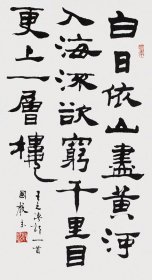 白日依山盡黃河
入海流欲窮千里目
更上一層樓
王之渙詩一首
國